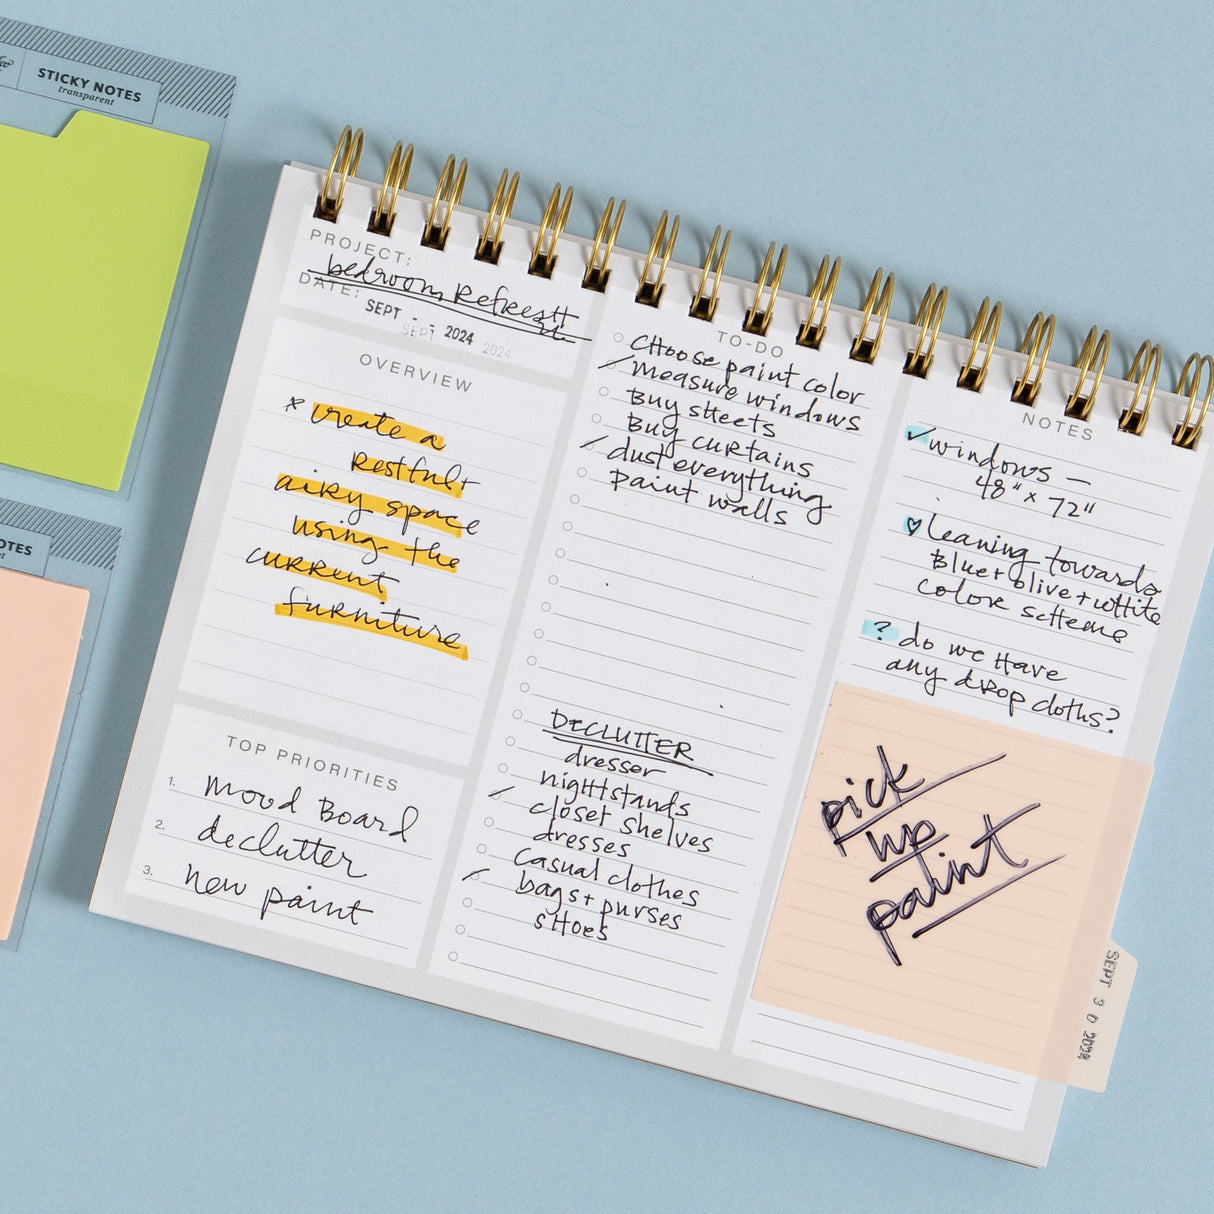 STICKY NOTES
transparent
OTES
PROJECT:
bedroom Refresh
DATE:
SEPT 2024
SEPT 2024
OVERVIEW
* create a
restful +
airy space
using the
current
furniture
TOP PRIORITIES
1. Mood Board
2. declutter
3. new paint
TO-DO
Choose paint color
Measure windows
Buy sheets
Buy curtains
dust everything
paint walls
DECLUTTER
dresser
nightstands
closet shelves
dresses
casual clothes
bags + purses
shoes
NOTES
✓ windows —
48" x 72"
♡ leaning towards
Blue + olive + white
color scheme
? do we have
any drop cloths?
pick
up
paint
SEPT 30 2024